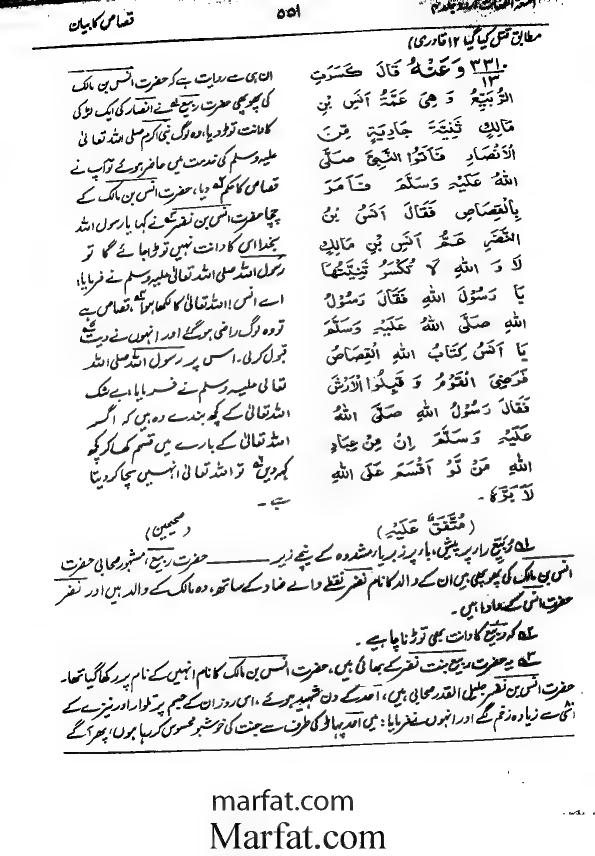 قصاص کا بیان
۵۵۱
مطابق قتل کیا گیا ۱۲ قادری)
۳۳۱۰/۱۳ وَ عَنْهُ قَالَ كَسَرَتِ
الرُّبَيِّعُ وَ هِيَ عَمَّةُ اَنَسِ بْنِ
مَالِكٍ ثَنِيَّةَ جَارِيَةٍ مِّنَ
الْاَنْصَارِ فَاَتَوُا النَّبِيَّ صَلَّى
اللهُ عَلَيْهِ وَسَلَّمَ فَاَمَرَ
بِالْقِصَاصِ فَقَالَ اَنَسُ بْنُ
النَّضْرِ عَمُّ اَنَسِ بْنِ مَالِكٍ
لَا وَ اللهِ لَا تُكْسَرُ ثَنِيَّتُهَا
يَا رَسُوْلَ اللهِ فَقَالَ رَسُوْلُ
اللهِ صَلَّى اللهُ عَلَيْهِ وَسَلَّمَ
يَا اَنَسُ كِتَابُ اللهِ الْقِصَاصُ
فَرَضِيَ الْقَوْمُ وَ قَبِلُوا الْاَرْشَ
فَقَالَ رَسُوْلُ اللهِ صَلَّى اللهُ
عَلَيْهِ وَسَلَّمَ اِنَّ مِنْ عِبَادِ
اللهِ مَنْ لَّوْ اَقْسَمَ عَلَى اللهِ
لَاَبَرَّهٗ۔
(مُتَّفَقٌ عَلَيْهِ)
ان ہی سے روایت ہے کہ حضرت انس بن مالک
کی پھوپھی حضرت ربیع نے انصار کی ایک لڑکی
کا دانت توڑ دیا، وہ لوگ نبی اکرم صلی اللہ تعالیٰ
علیہ وسلم کی خدمت میں حاضر ہوئے تو آپ نے
قصاص کا حکم دیا، حضرت انس بن مالک کے
چچا حضرت انس بن نضر نے کہا یا رسول اللہ
بخدا اس کا دانت نہیں توڑا جائے گا تو
رسول اللہ صلی اللہ تعالیٰ علیہ وسلم نے فرمایا:
اے انس! اللہ تعالیٰ کا لکھا ہوا قصاص ہے
تو وہ لوگ راضی ہو گئے اور انہوں نے دیت
قبول کر لی۔ اس پر رسول اللہ صلی اللہ
تعالیٰ علیہ وسلم نے فرمایا بے شک
اللہ تعالیٰ کے کچھ بندے وہ ہیں کہ اگر
اللہ تعالیٰ کے بارے میں قسم کھا کر کچھ
کہہ دیں تو اللہ تعالیٰ انہیں سچا کر دیتا
ہے۔
(صحیحین)
۱ ربیع را پر پیش، با پر زبر یا مشددہ کے نیچے زیر ـــــــ حضرت ربیع مشہور صحابی حضرت
انس بن مالک کی پھوپھی ہیں ان کے والد کا نام نضر نقطے والے ضاد کے ساتھ، وہ مالک کے والد ہیں اور نضر
حضرت انس کے دادا ہیں۔
۲ کہ ربیع کا دانت بھی توڑنا چاہیے۔
۳ یہ حضرت ربیع بنت نضر کے بھائی ہیں، حضرت انس بن مالک کا نام انہیں کے نام پر رکھا گیا تھا۔
حضرت انس بن نضر جلیل القدر صحابی ہیں، احد کے دن شہید ہوئے، اس روز ان کے جسم پر تلوار اور نیزے کے
اسّی سے زیادہ زخم لگے اور انہوں نے فرمایا: میں احد پہاڑ کی طرف سے جنت کی خوشبو محسوس کر رہا ہوں، پھر آگے
marfat.com
Marfat.com